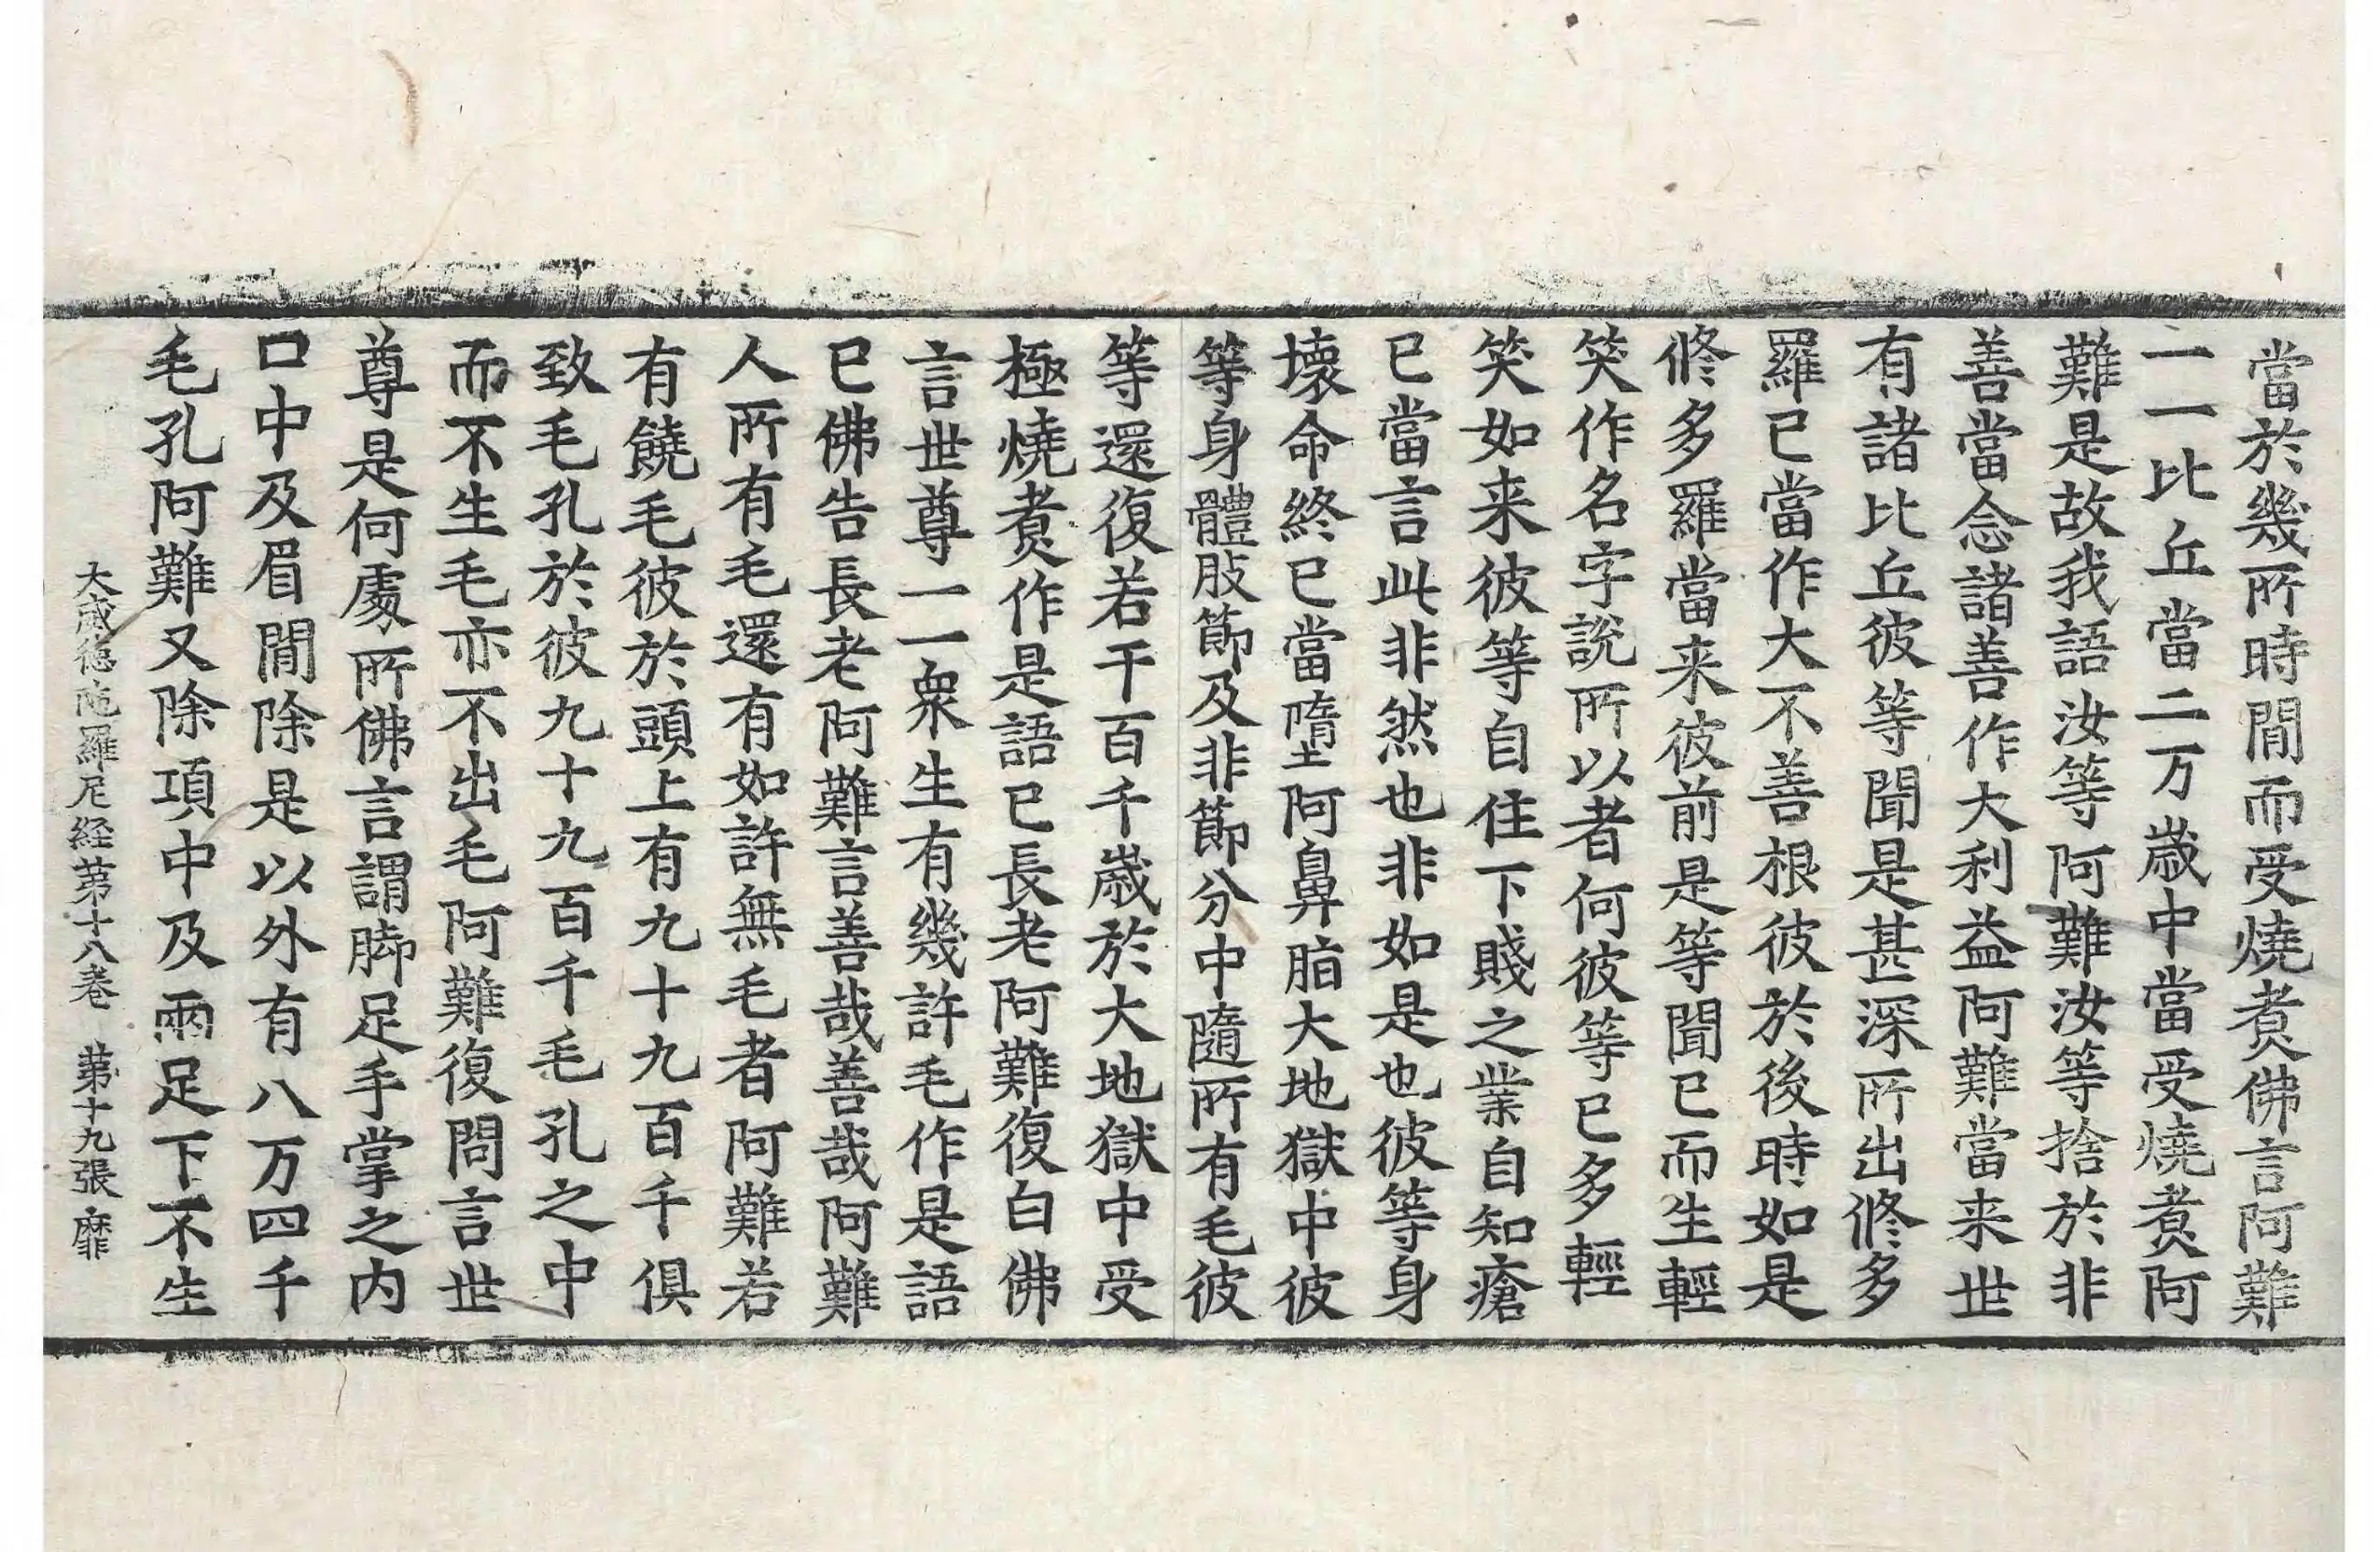 當於幾所時間而受燒煑佛言阿難
一一比丘當二万歳中當受燒煑阿
難是故我語汝等阿難汝等捨於非
善當念諸善作大利益阿難當来世
有諸比丘彼等聞是甚深所出修多
羅已當作大不善根彼於後時如是
修多羅當来彼前是等聞已而生輕
笑作名字說所以者何彼等已多輕
笑如来彼等自住下賤之業自知瘡
已當言此非然也非如是也彼等身
壞命終已當墮阿鼻脂大地獄中彼
等身體肢節及非節分中隨所有毛彼
等還復若干百千嵗於大地獄中受
極燒煑作是語已長老阿難復白佛
言世尊一一衆生有幾許毛作是語
已佛告長老阿難言善哉善哉阿難
人所有毛還有如許無毛者阿難若
有饒毛彼於頭上有九十九百千俱
致毛孔於彼九十九百千毛孔之中
而不生毛亦不出毛阿難復問言世
尊是何處所佛言謂脚足手掌之内
口中及眉間除是以外有八万四千
毛孔阿難又除項中及兩足下不生
大威德陁羅尼経第十八卷 第十九張 靡